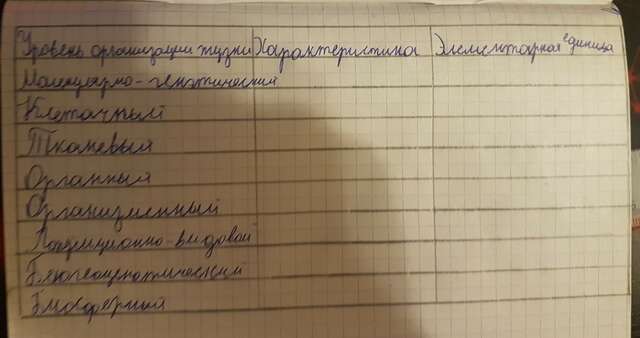 Уровень организации жизни Характеристика Элементарная единица
Молекулярно-генетический
Клеточный
Тканевый
Органный
Организменный
Популяционно-видовой
Биогеоценотический
Биосферный